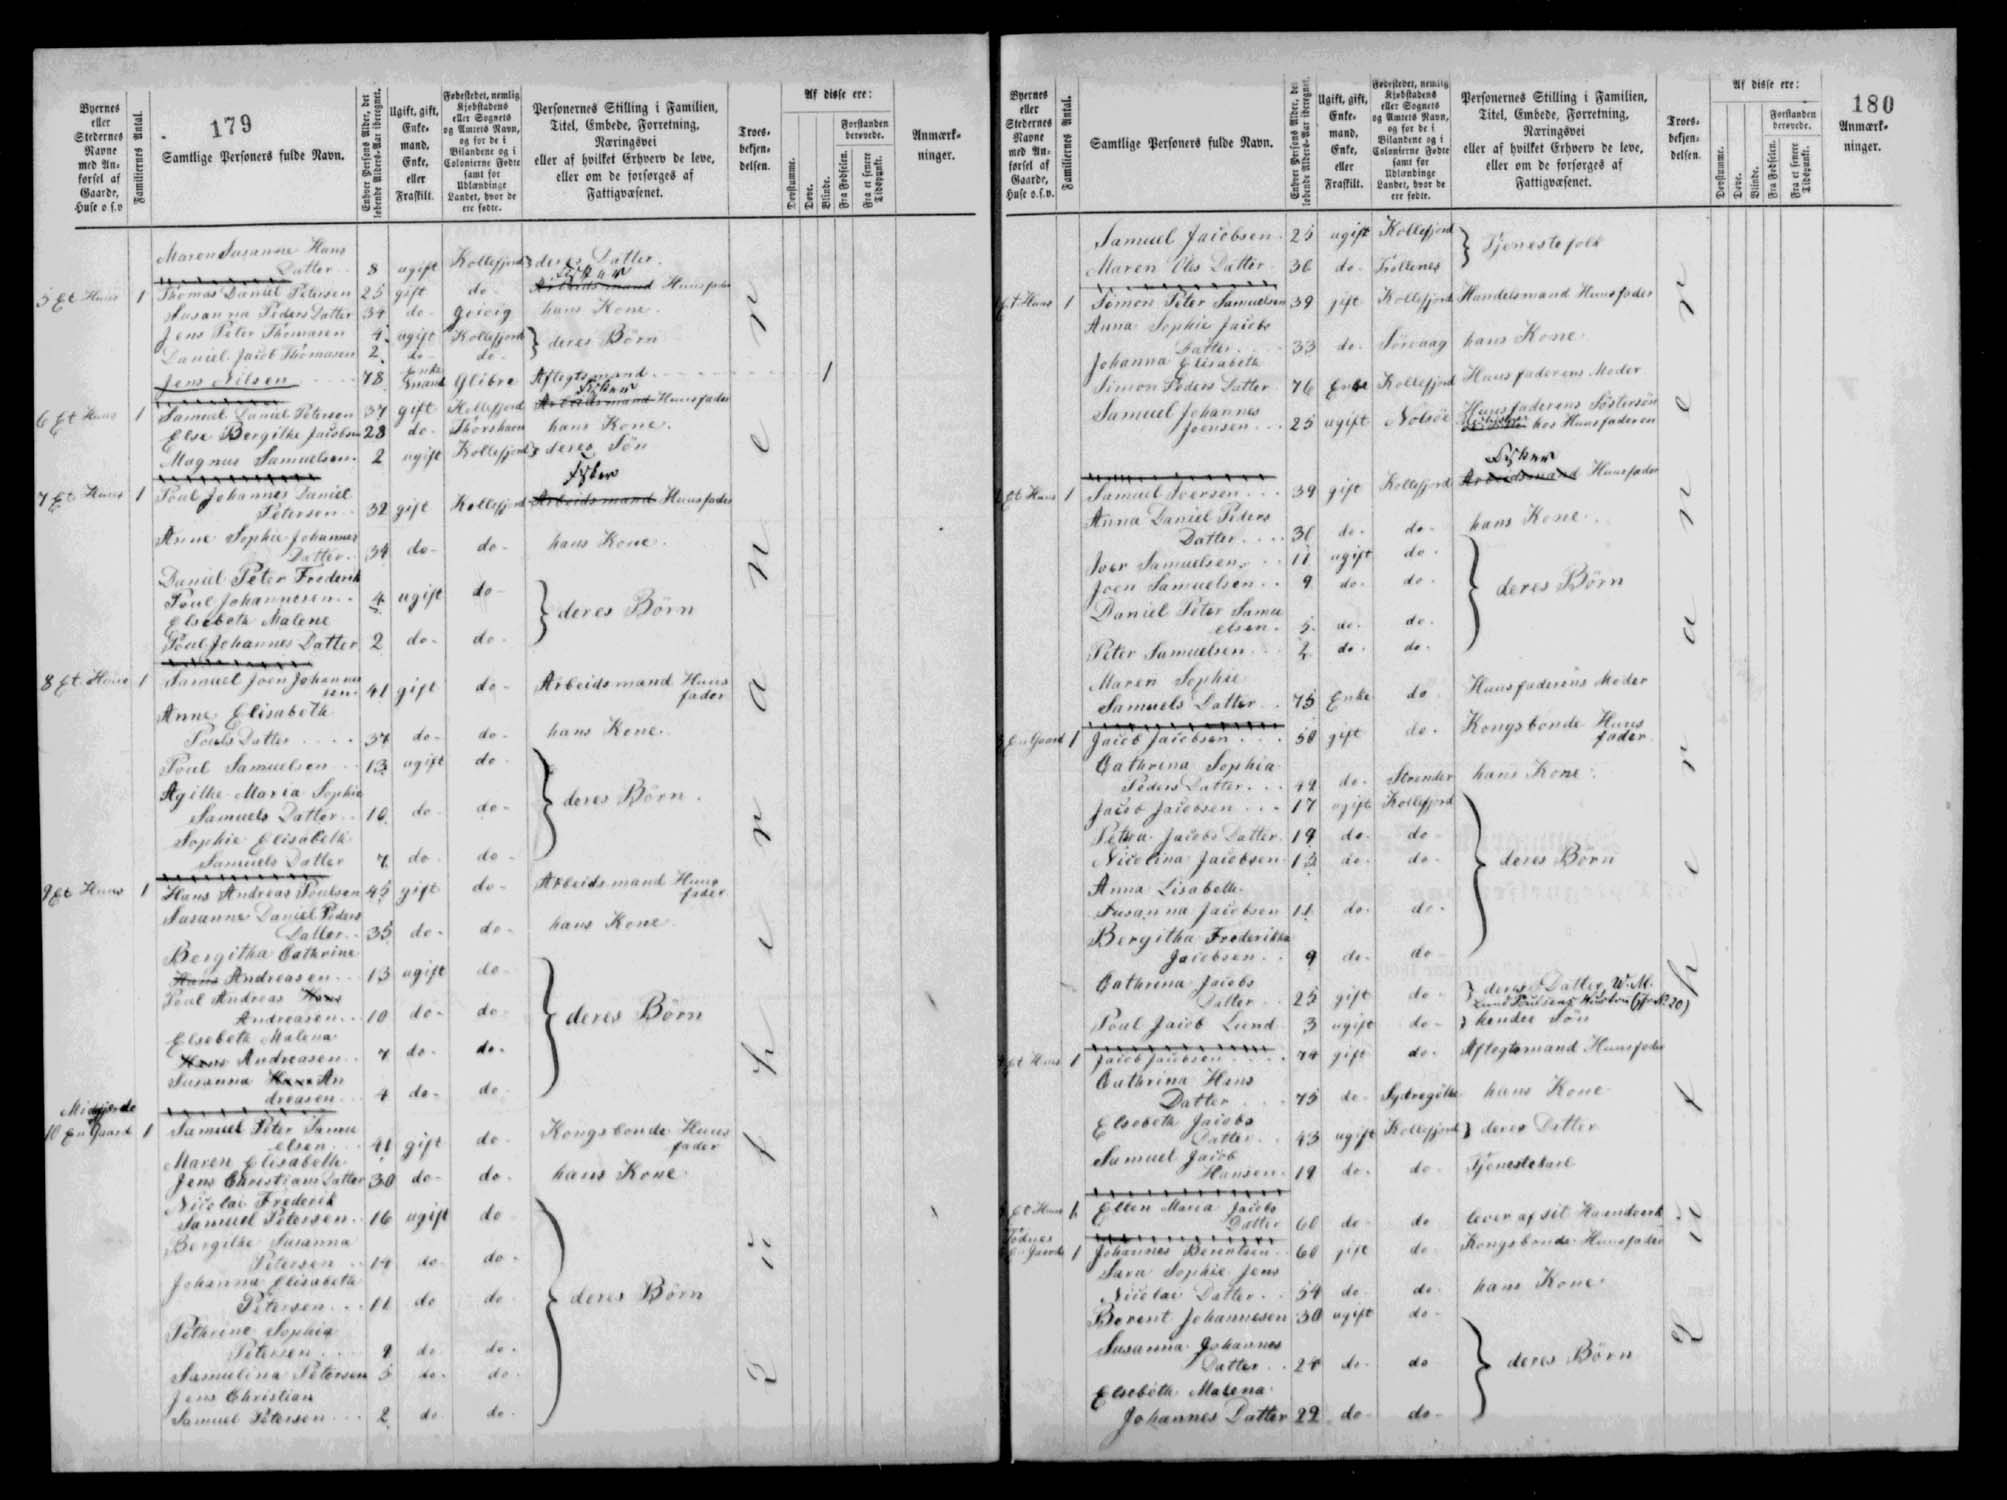 179
Byernes eller Stedernes Navne med Anførsel af Gaarde, Huse o.s.v
Familiernes Antal.
Samtlige Personers fulde Navn.
Enhver Persons Alder, det løbende Alders-Aar iberegnet.
Ugift, gift, Enkemand, Enke, eller Fraskilt.
Fødestedet, nemlig Kjøbstadens eller Sognets og Amtets Navn, og for de i Bilandene og i Colonierne Fødte samt for Udlændinge Landet, hvor de ere fødte.
Personernes Stilling i Familien, Titel, Embede, Forretning, Næringsvei eller af hvilket Erhverv de leve, eller om de forsørges af Fattigvæsenet.
Troesbekjendelsen.
Af disse ere:
Døvstumme.
Døve.
Blinde.
Forstanden berøvede.
Fra Fødselen.
Fra et senere Tidspunkt.
Anmærkninger.
Maren Susanne Hans
Datter 8 ugift Kollefjord } deres Datter.
Fisker
5 Et Huus 1 Thomas Daniel Petersen 25 gift do Arbeidsmand Huusfader
Susanna Peders Datter 34 do Gøivig hans Kone.
Jens Peter Thomasen 4 ugift Kollefjord } deres Børn
Daniel Jacob Thomasen 2 do do
Jens Nilsen 78 Enkemand Glibre Aftegtsmand 1
Fisker
6 Et Huus 1 Samuel Daniel Petersen 37 gift Kollefjord Arbeidsmand Huusfader
Else Bergithe Jacobsen 28 do Thorshavn hans Kone.
Magnus Samuelsen 2 ugift Kollefjord } deres Søn
Fisker
7 Et Huus 1 Poul Johannes Daniel
Petersen 32 gift Kollefjord Arbeidsmand Huusfader
Anne Sophie Johannes
Datter 34 do do hans Kone.
Daniel Peter Frederik
Poul Johannesen 4 ugift do } deres Børn
Elsebeth Malene
Poul Johannes Datter 2 do do
8 Et Huus 1 Samuel Joen Johannes
sen 41 gift do Arbeidsmand Huusfader
Anne Elisabeth
Pouls Datter 37 do do hans Kone.
Poul Samuelsen 13 ugift do } deres Børn.
Agithe Maria Sophie
Samuels Datter 10 do do
Sophie Elisabeth
Samuels Datter 7 do do
9 Et Huus 1 Hans Andreas Poulsen 45 gift do Arbeidsmand Huusfader
Susanne Daniel Peders
Datter 35 do do hans Kone
Bergitha Cathrine
Hans Andreasen 13 ugift do } deres Børn
Poul Andreas Hans
Andreasen 10 do do
Elsebeth Malena
Hans Andreasen 7 do do
Susanna Hans An
dreasen 4 do do
10 En Gaard 1 Samuel Peter Samu
elsen 41 gift do Kongsbonde Huusfader
Maren Elisabeth
Jens Christians Datter 30 do do hans Kone
Nicolai Frederik
Samuel Petersen 16 ugift do } deres Børn
Bergithe Susanna
Petersen 14 do do
Johanna Elisabeth
Petersen 11 do do
Pethrine Sophia
Petersen 9 do do
Samuelina Petersen 5 do do
Jens Christian
Samuel Petersen 2 do do
Lutheranere
180
Byernes eller Stedernes Navne med Anførsel af Gaarde, Huse o.s.v.
Familiernes Antal.
Samtlige Personers fulde Navn.
Enhver Persons Alder, det løbende Alders-Aar iberegnet.
Ugift, gift, Enkemand, Enke, eller Fraskilt.
Fødestedet, nemlig Kjøbstadens eller Sognets og Amtets Navn, og for de i Bilandene og i Colonierne Fødte samt for Udlændinge Landet, hvor de ere fødte.
Personernes Stilling i Familien, Titel, Embede, Forretning, Næringsvei eller af hvilket Erhverv de leve, eller om de forsørges af Fattigvæsenet.
Troesbekjendelsen.
Af disse ere:
Døvstumme.
Døve.
Blinde.
Forstanden berøvede.
Fra Fødselen.
Fra et senere Tidspunkt.
Anmærkninger.
Samuel Jacobsen 25 ugift Kollefjord } Tjenestefolk
Maren Oles Datter 36 do Trollenes
Et Huus 1 Simon Peter Samuelsen 39 gift Kollefjord Handelsmand Huusfader
Anna Sophie Jacobs
Datter 33 do Sørvaag hans Kone
Johanna Elisabeth
Simon Peders Datter 76 Enke Kollefjord Huusfaderens Moder
Samuel Johannes
Joensen 25 ugift Nolsøe Huusfaderens Søstersøn
hos Huusfaderen
Fisker
Et Huus 1 Samuel Iversen 39 gift Kollefjord Arbeidsmand Huusfader
Anna Daniel Peders
Datter 36 do do hans Kone.
Iver Samuelsen 11 ugift do } deres Børn
Joen Samuelsen 9 do do
Daniel Peter Samu
elsen 5 do do
Peter Samuelsen 2 do do
Maren Sophie
Samuels Datter 75 Enke do Huusfaderens Moder
En Gaard 1 Jacob Jacobsen 50 gift do Kongsbonde Huusfader
Cathrina Sophia
Peders Datter 49 do Strender hans Kone
Jacob Jacobsen 17 ugift Kollefjord } deres Børn
Petra Jacobs Datter 19 do do
Nicolina Jacobsen 13 do do
Anna Lisabeth
Susanna Jacobsen 11 do do
Bergitha Frederikka
Jacobsen 9 do do
Cathrina Jacobs
Datter 25 gift do } deres Datter, W. M.
Lund Poulsens Hustru
Poul Jacob Lund 3 ugift do } hendes Søn
Et Huus 1 Jacob Jacobsen 74 gift do Aftegtsmand Huusfader
Cathrina Hans
Datter 75 do hans Kone
Elsebeth Jacobs
Datter 43 ugift Kollefjord } deres Datter
Samuel Jacob
Hansen 19 do do Tjenestekarl
Et Huus 1 Ellen Maria Jacobs
Datter 60 do do lever af sit Haandværk
1 Johannes Berentsen 60 gift do Kongsbonde Huusfader
Sara Sophie Jens
Nicolai Datter 54 do do hans Kone
Berent Johannesen 30 ugift do } deres Børn
Susanna Johannes
Datter 24 do do
Elsebeth Malena
Johannes Datter 22 do do
Lutheranere